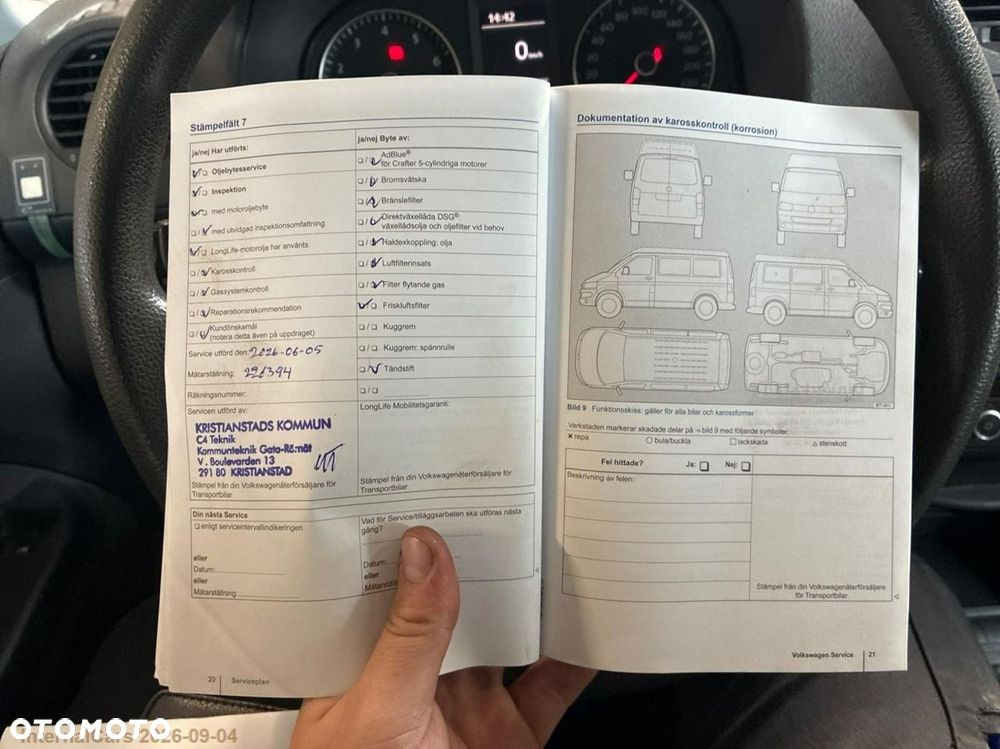 14:42
0 km/h
Stämpelfält 7
ja/nej Har utförts:
Oljebytesservice
Inspektion
med motoroljebyte
med utvidgad inspektionsomfattning
LongLife-motorolja har använts
Karosskontroll
Gassystemkontroll
Reparationsrekommendation
Kundönskemål
(notera detta även på uppdraget)
Service utförd den: 2026-06-05
Mätarställning: 226394
Räkningsnummer:
Servicen utförd av:
KRISTIANSTADS KOMMUN
C4 Teknik
Kommunteknik Gata-Renhåt
V. Boulevarden 13
291 80 KRISTIANSTAD
Stämpel från din Volkswagenåterförsäljare för
Transportbilar
ja/nej Byte av:
AdBlue®
för Crafter 5-cylindriga motorer
Bromsvätska
Bränslefilter
Direktväxellåda DSG®:
växellådsolja och oljefilter vid behov
Haldexkoppling: olja
Luftfilterinsats
Filter flytande gas
Friskluftsfilter
Kuggrem
Kuggrem: spännrulle
Tändstift
LongLife Mobilitetsgaranti:
Stämpel från din Volkswagenåterförsäljare för
Transportbilar
Din nästa Service
enligt serviceintervallindikeringen
eller
Datum:
eller
Mätarställning:
Vad för Service/tilläggsarbeten ska utföras nästa
gång?
Datum:
eller
Mätarställ
20 Serviceplan
Dokumentation av karosskontroll (korrosion)
Bild 9 Funktionsskiss: gäller för alla bilar och karossformer
Verkstaden markerar skadade delar på ⇒ bild 9 med följande symboler:
× repa ○ bula/buckla □ lackskada △ stenskott
Fel hittade? Ja: Nej:
Beskrivning av felen:
Stämpel från din Volkswagenåterförsäljare
för Transportbilar
Volkswagen Service 21
OTOMOTO
InternalCars 2026-09-04